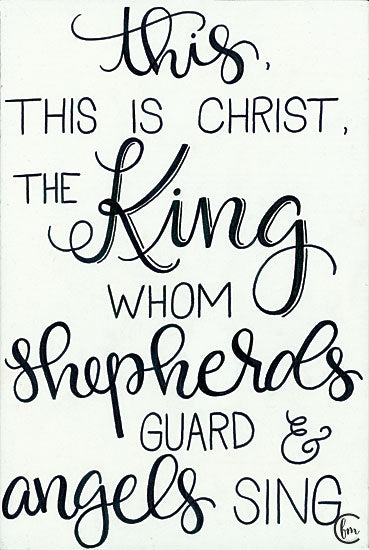 this,
THIS IS CHRIST,
THE King
WHOM
shepherds
GUARD &
angels SING
bm